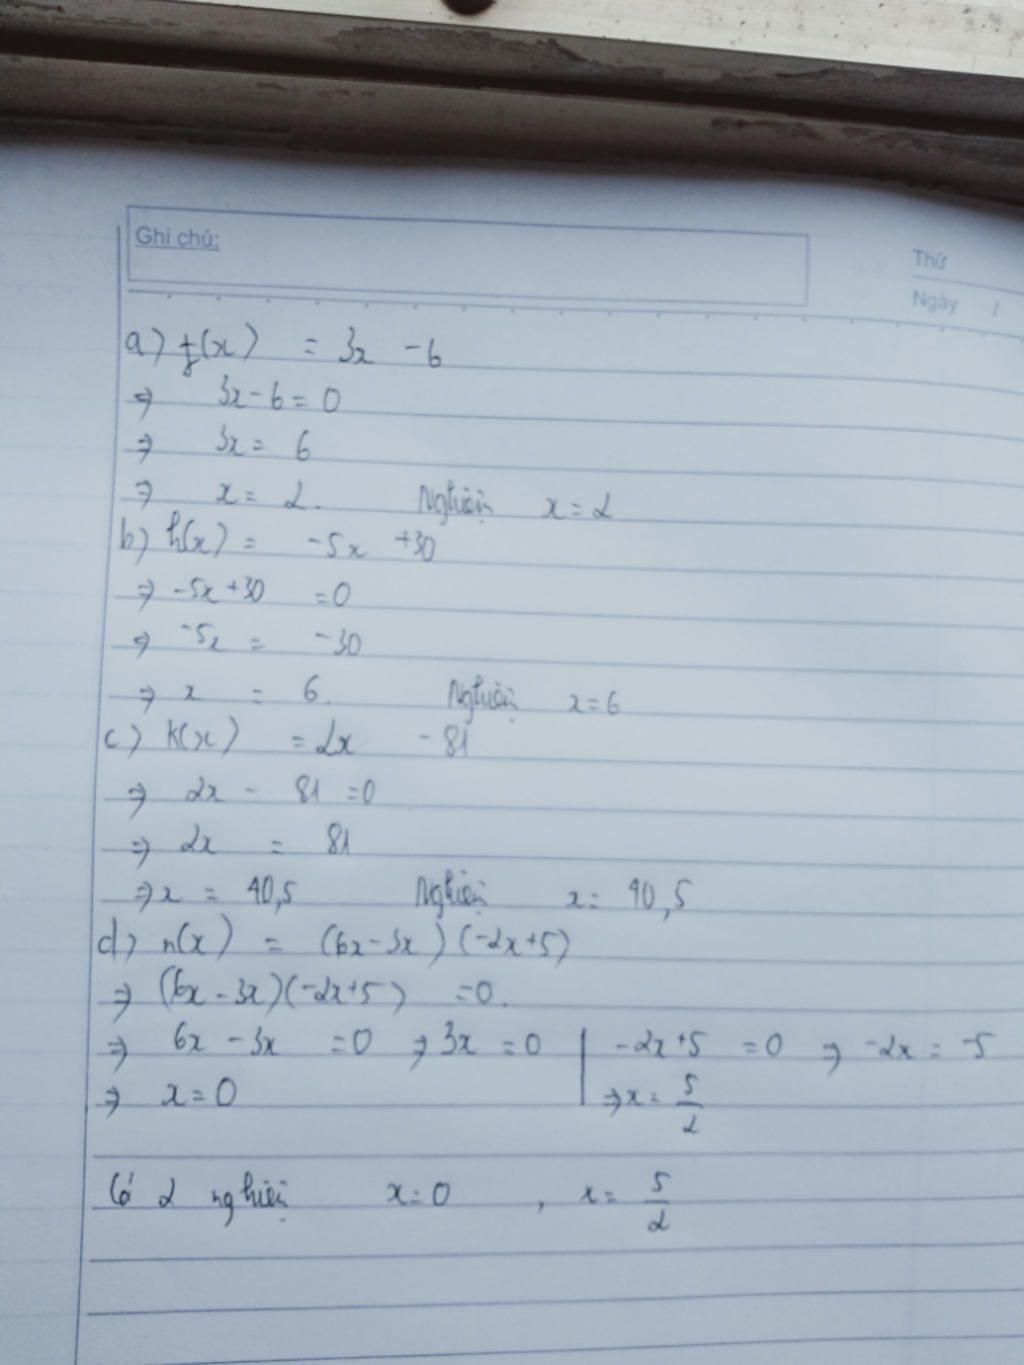 Ghi chú:
Thứ
Ngày /
a) f(x) = 3x - 6
⇒ 3x - 6 = 0
⇒ 3x = 6
⇒ x = 2. Nghiệm x = 2
b) h(x) = -5x +30
⇒ -5x +30 = 0
⇒ -5x = -30
⇒ x = 6. Nghiệm x = 6
c) k(x) = 2x - 81
⇒ 2x - 81 = 0
⇒ 2x = 81
⇒ x = 40,5 Nghiệm x = 40,5
d) n(x) = (6x - 3x) (-2x+5)
⇒ (6x - 3x)(-2x+5) = 0.
⇒ 6x - 3x = 0 ⇒ 3x = 0 | -2x+5 = 0 ⇒ -2x = -5
⇒ x = 0 | ⇒ x = 5/2
Có 2 nghiệm x = 0 , x = 5/2